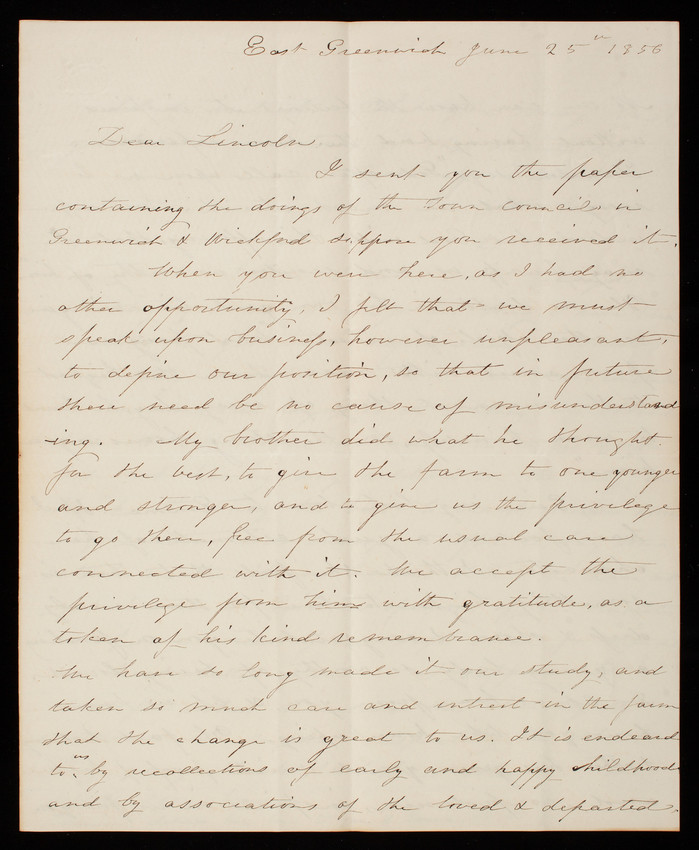 East Greenwich June 25th 1856
Dear Lincoln
I sent you the paper
containing the doings of the Town Council in
Greenwich & Wickford suppose you received it.
When you were here, as I had no
other opportunity, I felt that we must
speak upon business, however unpleasant,
to define our position, so that in future
there need be no cause of misunderstand
-ing. My brother did what he thought
for the best, to give the farm to one younger
and stronger, and to give us the privilege
to go there, free from the usual care
connected with it. We accept the
privilege from him with gratitude, as a
token of his kind remembrance.
We have so long made it our study, and
taken so much care and intrest in the farm
that the change is great to us. It is endeard
to us by recollections of early and happy childhood
and by associations of the loved & departed.